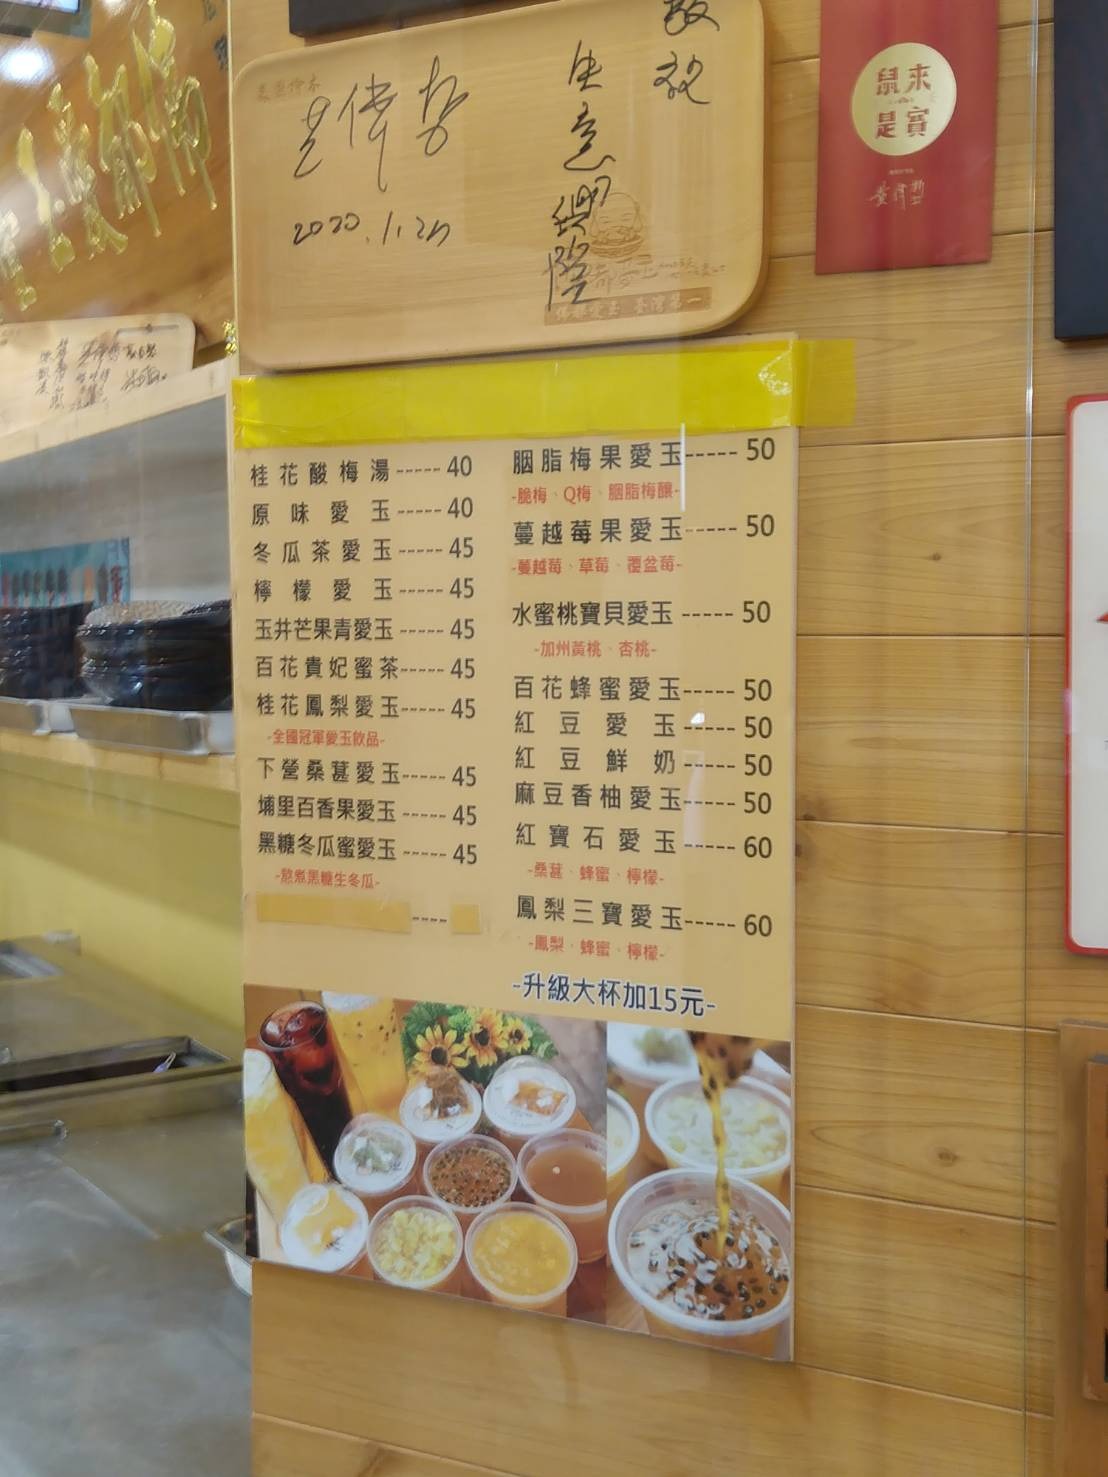 敬祝
生意興隆
2020.1.2
鼠來
是寶
桂花酸梅湯-----40
原味愛玉-----40
冬瓜茶愛玉-----45
檸檬愛玉-----45
玉井芒果青愛玉-----45
百花貴妃蜜茶-----45
桂花鳳梨愛玉-----45
-全國冠軍愛玉飲品-
下營桑葚愛玉-----45
埔里百香果愛玉-----45
黑糖冬瓜蜜愛玉-----45
-熬煮黑糖生冬瓜-
胭脂梅果愛玉-----50
-脆梅、Q梅、胭脂梅釀-
蔓越莓果愛玉-----50
-蔓越莓、草莓、覆盆莓-
水蜜桃寶貝愛玉-----50
-加州黃桃、杏桃-
百花蜂蜜愛玉-----50
紅豆愛玉-----50
紅豆鮮奶-----50
麻豆香柚愛玉-----50
紅寶石愛玉-----60
-桑葚、蜂蜜、檸檬-
鳳梨三寶愛玉-----60
-鳳梨、蜂蜜、檸檬-
-升級大杯加15元-